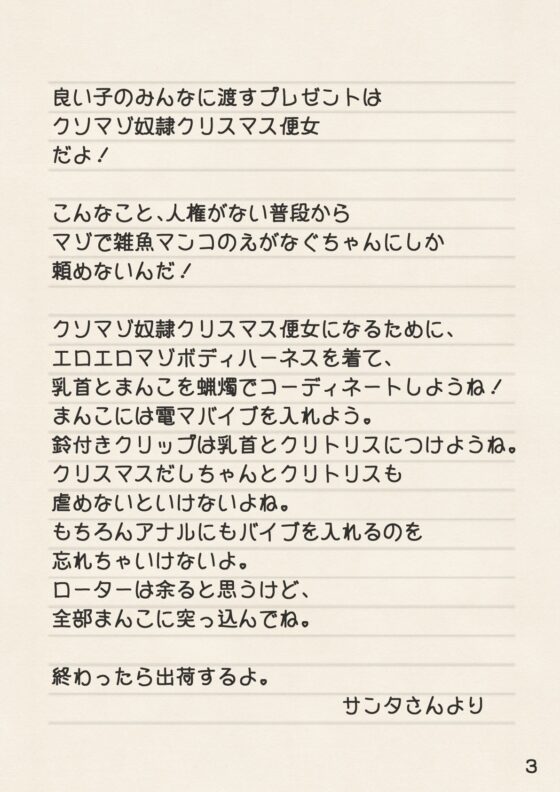 良い子のみんなに渡すプレゼントは
クソマゾ奴隷クリスマス便女
だよ！
こんなこと、人権がない普段から
マゾで雑魚マンコのえがなぐちゃんにしか
頼めないんだ！
クソマゾ奴隷クリスマス便女になるために、
エロエロマゾボディハーネスを着て、
乳首とまんこを蝋燭でコーディネートしようね！
まんこには電マバイブを入れよう。
鈴付きクリップは乳首とクリトリスにつけようね。
クリスマスだしちゃんとクリトリスも
虐めないといけないよね。
もちろんアナルにもバイブを入れるのを
忘れちゃいけないよ。
ローターは余ると思うけど、
全部まんこに突っ込んでね。
終わったら出荷するよ。
サンタさんより
3